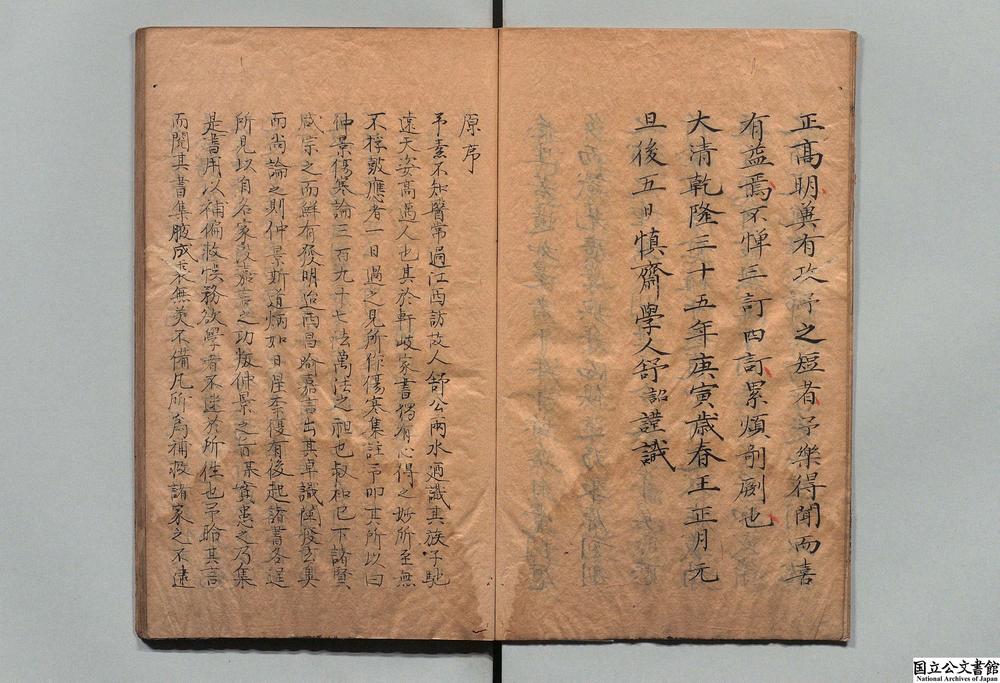 正高明冀有攻予之短者予樂得聞而喜
有益焉不憚三訂四訂累煩剞劂也
大清乾隆三十五年庚寅歲春王正月元
旦後五日慎齋學人舒詔謹識
原序
予素不知醫常過江西訪故人舒公兩水廼識其族子馳
遠天姿高邁人也其於軒岐家書獨有心得之妙所至無
不桴皷應者一日過之見所作傷寒集註予叩其所以曰
仲景傷寒論三百九十七法萬法之祖也叔和已下諸賢
咸宗之而鮮有發明迨西昌喻嘉言出其卓識陳發玄奥
而尚論之則仲景斯道炳如日星柰復有後起諸書各逞
所見以自名家没嘉言之功叛仲景之旨某寔患之乃集
是書用以補偏救悞務欲學者不迷於所徃也予聆其言
而閱其書集腋成裘無美不備凡所為補救諸家之不逮
国立公文書館
National Archives of Japan